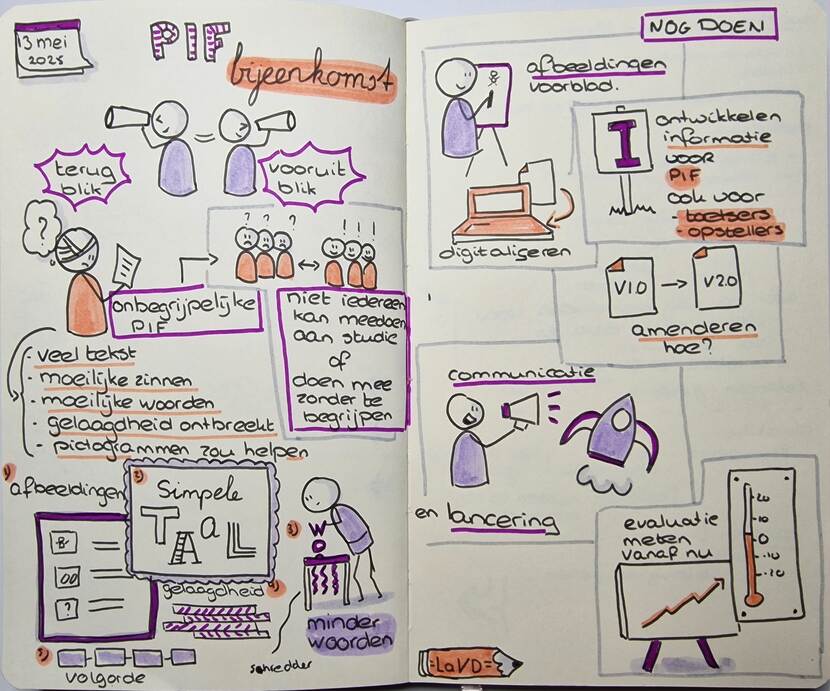 13 mei
2025
PIF
bijeenkomst
terug
blik
vooruit
blik
?
? ? ?
! ! !
onbegrijpelijke
PIF
niet iedereen
kan meedoen
aan studie
of
doen mee
zonder te
begrijpen
- veel tekst
- moeilijke zinnen
- moeilijke woorden
- gelaagdheid ontbreekt
- pictogrammen zou helpen
1)
afbeeldingen
?
2)
Simpele
TAAL
3)
WO
minder
woorden
schredder
gelaagdheid
4)
5)
volgorde
NOG DOEN
afbeeldingen
voorblad.
digitaliseren
I
ontwikkelen
informatie
voor
PIF
ook voor
- toetsers
- opstellers
V1.0
V2.0
amenderen
hoe?
communicatie
en lancering
evaluatie
meten
vanaf nu
20
10
0
-10
-20
=LaVD=